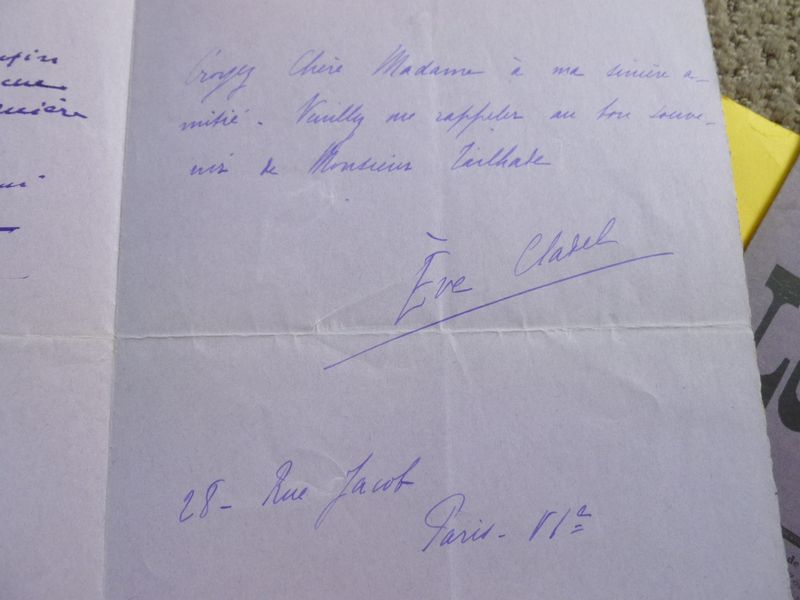 Croyez Chère Madame à ma sincère a-
mitié. Veuillez me rappeler au bon souve-
nir de Monsieur Tailhade
Ève Cladel
28 - Rue Jacob
Paris - VIe